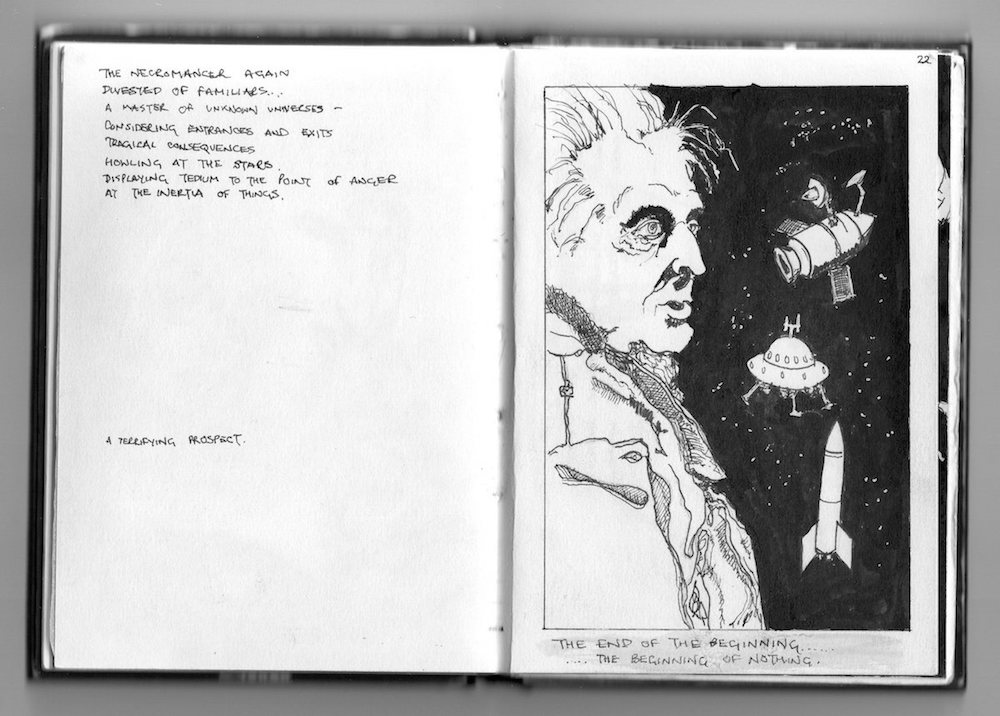 THE NECROMANCER AGAIN
DIVESTED OF FAMILIARS...
A MASTER OF UNKNOWN UNIVERSES –
CONSIDERING ENTRANCES AND EXITS
TRAGICAL CONSEQUENCES
HOWLING AT THE STARS
DISPLAYING TEDIUM TO THE POINT OF ANGER
AT THE INERTIA OF THINGS.
A TERRIFYING PROSPECT.
22
THE END OF THE BEGINNING......
.... THE BEGINNING OF NOTHING.